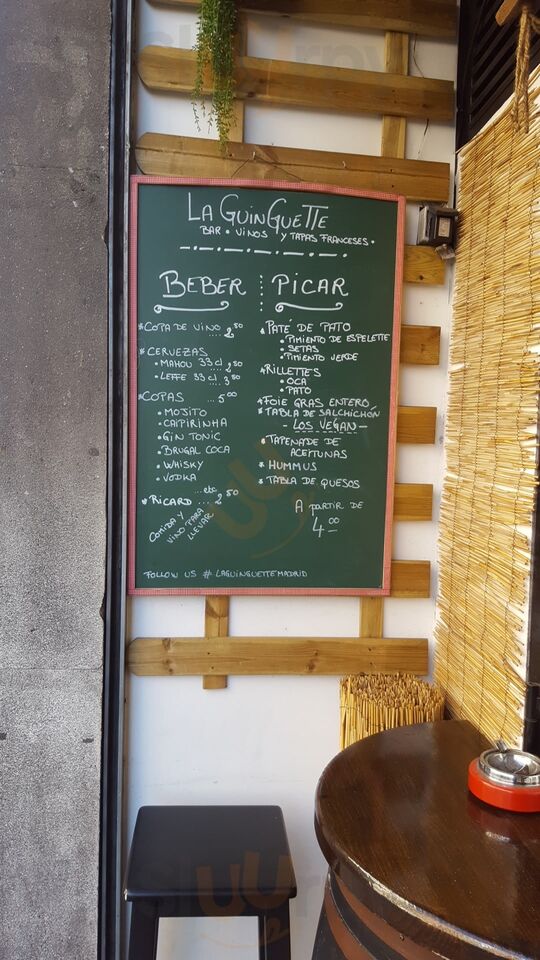 LA GUINGUETTE
BAR • VINOS Y TAPAS FRANCESES •
BEBER
* COPA DE VINO ... 2,50
* CERVEZAS
• MAHOU 33 cl .... 2,50
• LEFFE 33 cl .... 3,50
* COPAS ... 5,00
• MOJITO
• CAIPIRINHA
• GIN TONIC
• BRUGAL COCA
• WHISKY
• VODKA
... etc
* RICARD ... 2,50
COMIDA Y
VINO PARA
LLEVAR
PICAR
* PATÉ DE PATO
• PIMIENTO DE ESPELETTE
• SETAS
• PIMIENTO VERDE
* RILLETTES
• OCA
• PATO
* FOIE GRAS ENTERO
* TABLA DE SALCHICHÓN
- LOS VEGAN -
* TAPENADE DE
ACEITUNAS
* HUMMUS
* TABLA DE QUESOS
A PARTIR DE
4,00
FOLLOW US # LAGUINGUETTEMADRID